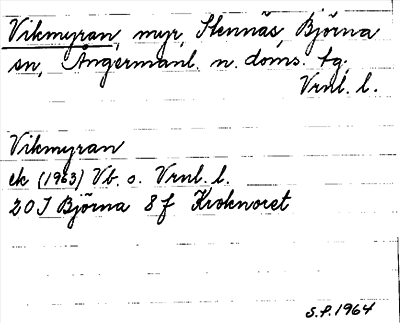 Vikmyran, myr, Stennäs, Björna
sn, Ångermanl. n. doms. tg,
Vrnl. l.
Vikmyran
ek (1963) Vb. o. Vrnl. l.
20 J Björna 8 f Kroknoret
S.P. 1964